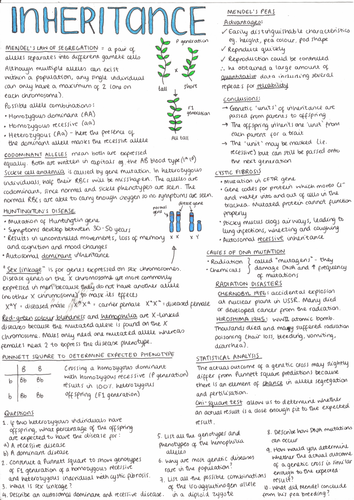 INHERITANCE
MENDEL'S LAW OF SEGREGATION = a pair of
alleles separates into different gamete cells
Although multiple alleles can exist
within a population, any single individual
can only have a maximum of 2 (one on
each chromosome).
Possible allele combinations:
• Homozygous dominant (AA)
• Homozygous recessive (aa)
• Heterozygous (Aa) - here the presence of
the dominant allele masks the recessive allele
P generation
tall
x
short
F1
generation
All tall
CODOMINANT ALLELES mean both are expressed
equally. Both are written in capitals eg the AB blood type
Sickle cell anaemia is caused by gene mutation. In heterozygous
individuals, half their RBCs will be misshapen. The alleles are
codominant, since normal and sickle phenotypes are seen. The
normal RBCs are able to carry enough oxygen so no symptoms are seen.
HUNTINGTON'S DISEASE
• Mutation of Huntingtin gene
• Symptoms develop between 30-50 years
• Results in uncontrolled movements, loss of memory
and cognition and mood changes
• Autosomal dominant inheritance
normal gene
affected gene
"Sex linkage" is for genes expressed on sex chromosomes.
Disease genes on the X chromosome are more commonly
expressed in men because they do not have another allele
(no other X chromosomes) to mask its effects
= diseased male
= carrier female
= diseased female
Red-green colour blindness and haemophilia are X-linked
diseases because the mutated allele is found on the X
chromosome. Males only need one mutated allele whereas
females need 2 to express the disease phenotype.
PUNNETT SQUARE TO DETERMINE EXPECTED PHENOTYPE
B B
b Bb Bb
b Bb Bb
Crossing a homozygous dominant
with homozygous recessive (P generation)
results in 100% heterozygous
offspring (F1 generation)
QUESTIONS
1. If two heterozygous individuals have
offspring, what percentage of the offspring
are expected to have the disease for:
a) A recessive disease
b) A dominant disease
2. Construct a Punnett square to show genotypes
of F1 generation of a homozygous recessive
and heterozygous individual with cystic fibrosis.
3. What is sex linkage?
4. Describe an autosomal dominant and recessive disease.
MENDEL'S PEAS
Advantages:
✓ Easily distinguishable characteristics
eg. height, pea colour, pod shape
✓ Reproduce quickly
✓ Reproduction could be controlled
∴ he obtained a large amount of
quantitative data including several
repeats for reliability
Conclusions:
• Genetic "units" of inheritance are
passed from parents to offspring
• The offspring inherits one "unit" from
each parent for a trait
• The "unit" may be masked (i.e.
recessive) but can still be passed onto
the next generation
CYSTIC FIBROSIS
• Mutation in CFTR gene
• Gene codes for protein which moves Cl-
and water into and out of cells in the
trachea. Mutated protein cannot function
properly
• Sticky mucus clogs airways, leading to
lung infections, wheezing and coughing
• Autosomal recessive inheritance
CAUSES OF DNA MUTATION
• Radiation
• Chemicals
called "mutagens" - they
damage DNA and ↑ frequency
of mutations
RADIATION DISASTERS
CHERNOBYL, 1986: accidental explosion
at nuclear plant in USSR. Many died
or developed cancer from the radiation
HIROSHIMA, 1945: WWII atomic bomb.
Thousands died and many suffered radiation
poisoning (hair loss, bleeding, vomiting,
diarrhoea).
STATISTICAL ANALYSIS
The actual outcome of a genetic cross may slightly
differ from Punnett square predictions because
there is an element of chance in allele segregation
and fertilisation.
Chi-square test allow us to determine whether
an actual result is a close enough fit to the expected
result.
5. List all the genotypes and
phenotypes of the haemophilia
alleles
6. Why are most genetic diseases
rare in the population?
7. List all the possible combinations
in a diploid zygote
8. Describe how DNA mutations
can occur
9. How would you determine
whether the actual outcome
of a genetic cross is similar
enough to the expected
result?
10. What did Mendel conclude
from his pea breeding?